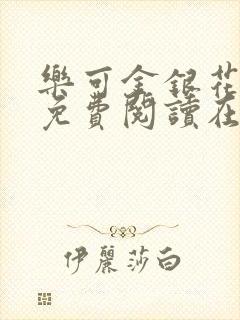 樂可金銀花
免費閱讀在
伊麗莎白